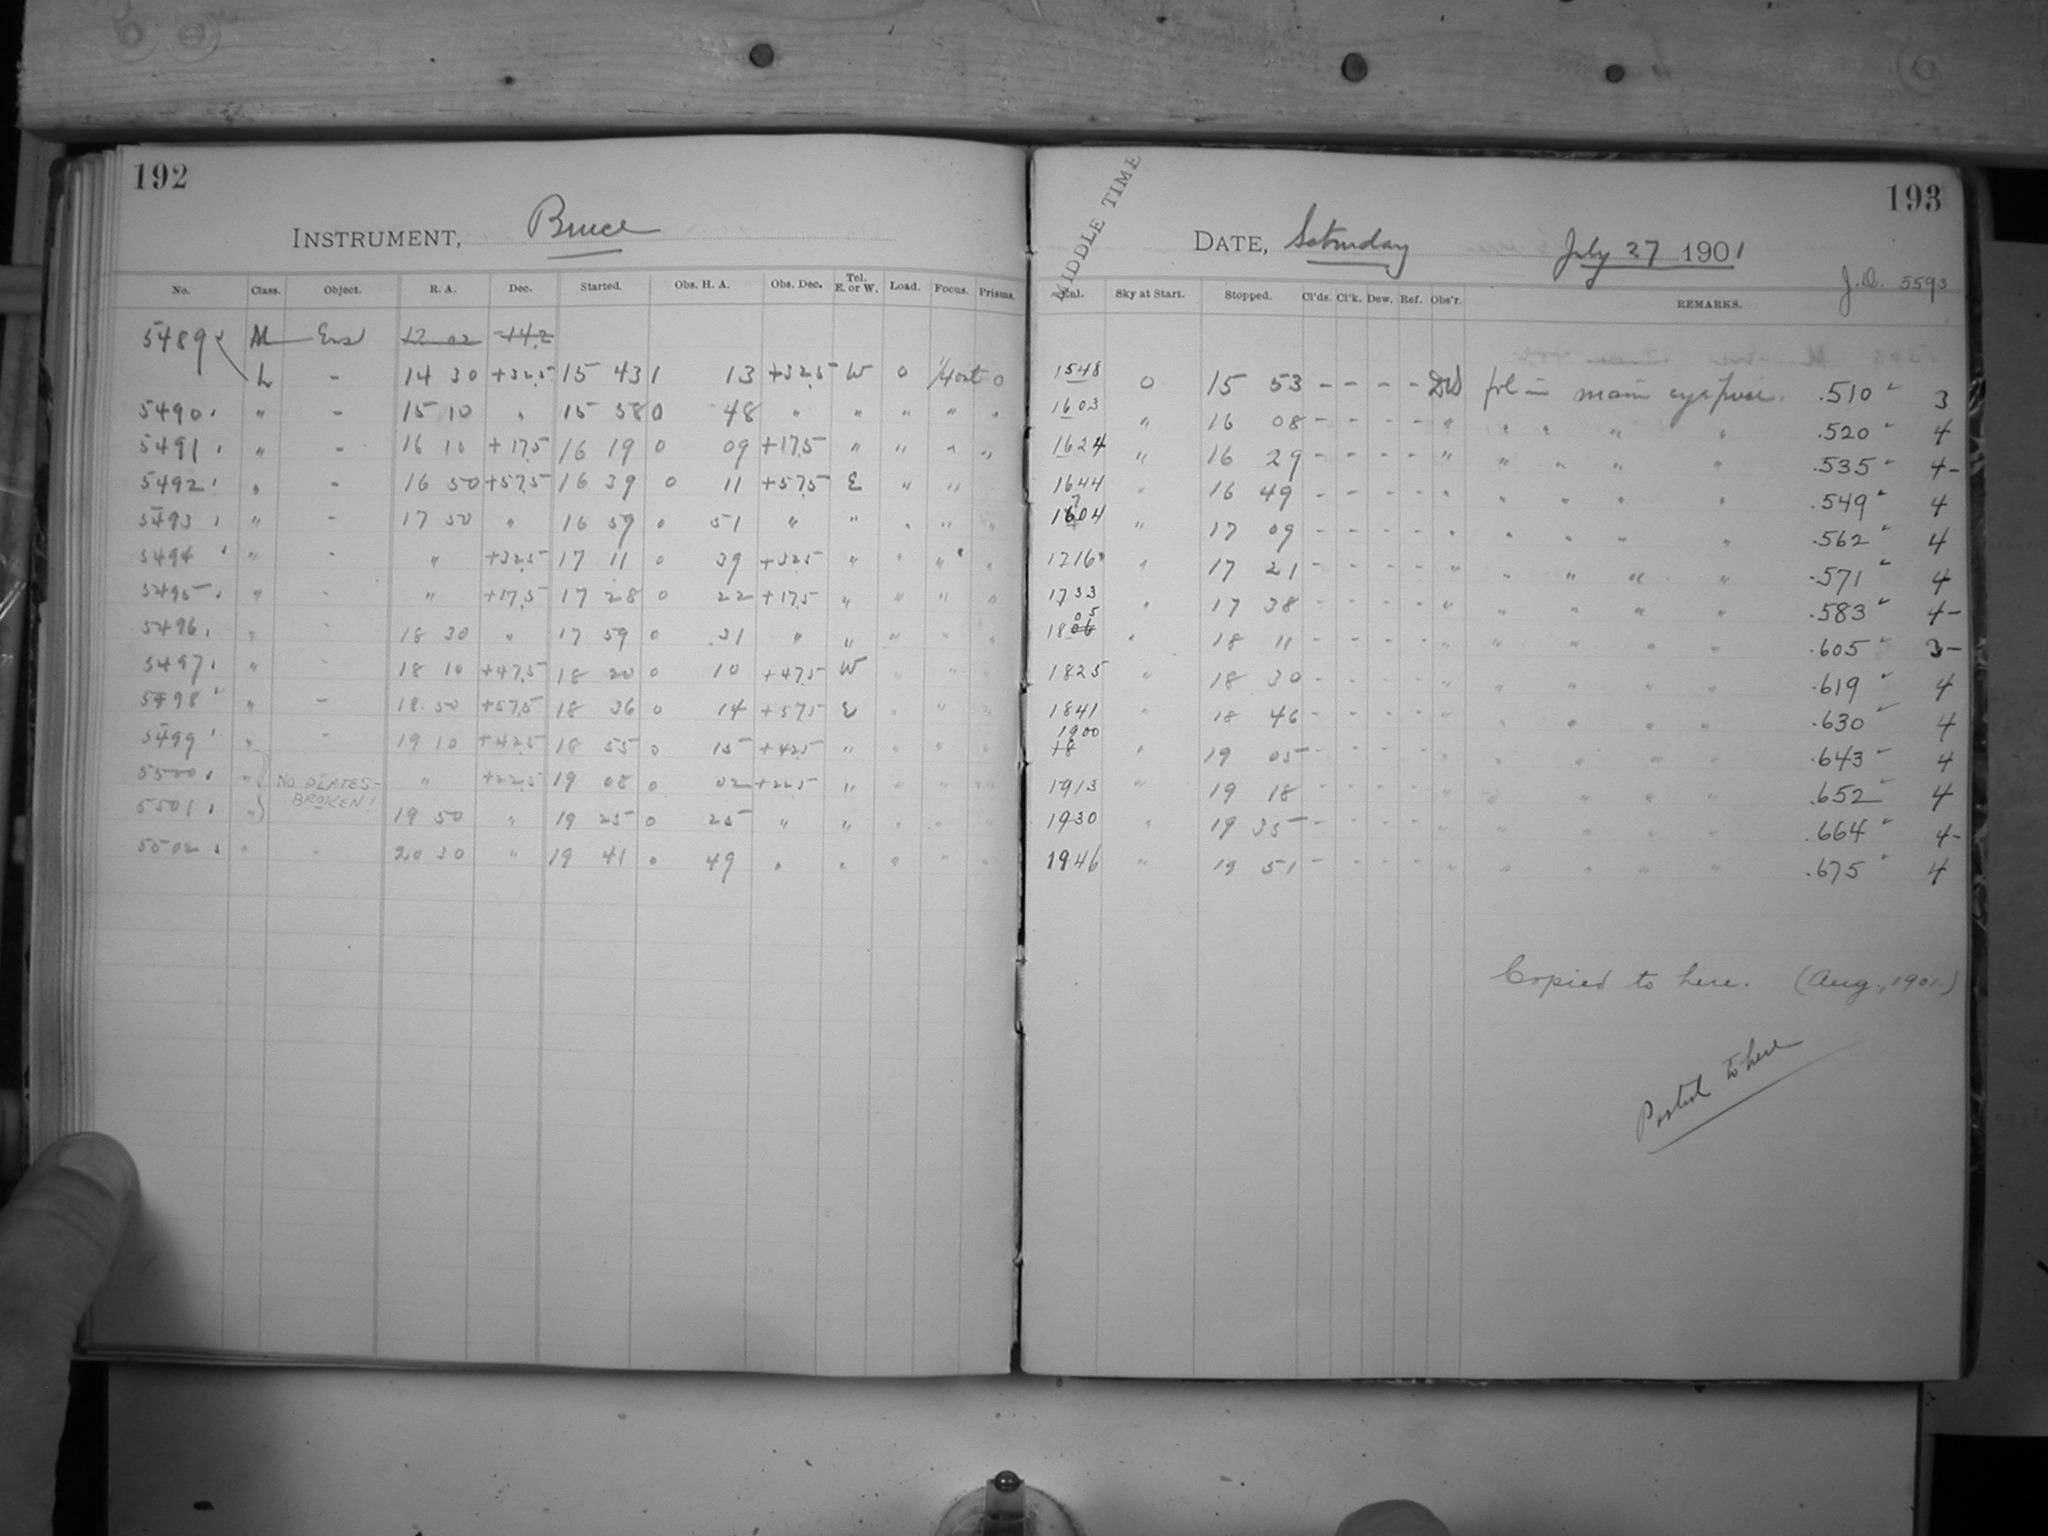 192
INSTRUMENT, Bruce
No. Class. Object. R. A. Dec. Started. Obs. H. A. Obs. Dec. Tel. E. or W. Load. Focus. Prisms.
5489 M Eros 12 02 -14.2
L - 14 30 +32.5 15 43 1 13 +32.5 W 0 1/4 out 0
5490 " - 15 10 " 15 58 0 48 " " " " "
5491 " - 16 10 +17.5 16 19 0 09 +17.5 " " " "
5492 " - 16 50 +57.5 16 39 0 11 +57.5 E " "
5493 " - 17 50 " 16 59 0 51 " " " " "
5494 " - " +32.5 17 11 0 39 +32.5 " " " "
5495 " - " +17.5 17 28 0 22 +17.5 " " " "
5496 " - 18 30 " 17 59 0 31 " " " " "
5497 " - 18 10 +47.5 18 20 0 10 +47.5 W " "
5498 " - 18 50 +57.5 18 36 0 14 +57.5 E " " "
5499 " - 19 10 +42.5 18 55 0 15 +42.5 " " " "
5500 " NO PLATES- " +22.5 19 08 0 02 +22.5 " " " "
5501 " BROKEN! 19 50 " 19 25 0 25 " " " " "
5502 " - 20 30 " 19 41 0 49 " " " " "
193
MIDDLE TIME
DATE, Saturday July 27 1901
J.D. 5593
Enl. Sky at Start. Stopped. Cl'ds. Cl'k. Dew. Ref. Obs'r. REMARKS.
1548 0 15 53 - - - - fol in main eyepiece. .510 3
1603 " 16 08 - - - - " " " " " .520 4
1624 " 16 29 - - - - " " " " " .535 4-
1644 " 16 49 - - - - " " " " " .549 4
1704 " 17 09 - - - - " " " " " .562 4
1716 " 17 21 - - - - " " " " " .571 4
1733 " 17 38 - - - - " " " " " .583 4-
05
1806 " 18 11 - - - - " " " " " .605 3-
1825 " 18 30 - - - - " " " " " .619 4
1841 " 18 46 - - - - " " " " " .630 4
1900 " 19 05 - - - - " " " " " .643 4
1913 " 19 18 - - - - " " " " " .652 4
1930 " 19 35 - - - - " " " " " .664 4-
1946 " 19 51 - - - - " " " " " .675 4
Copied to here. (Aug., 1901.)
Posted to here